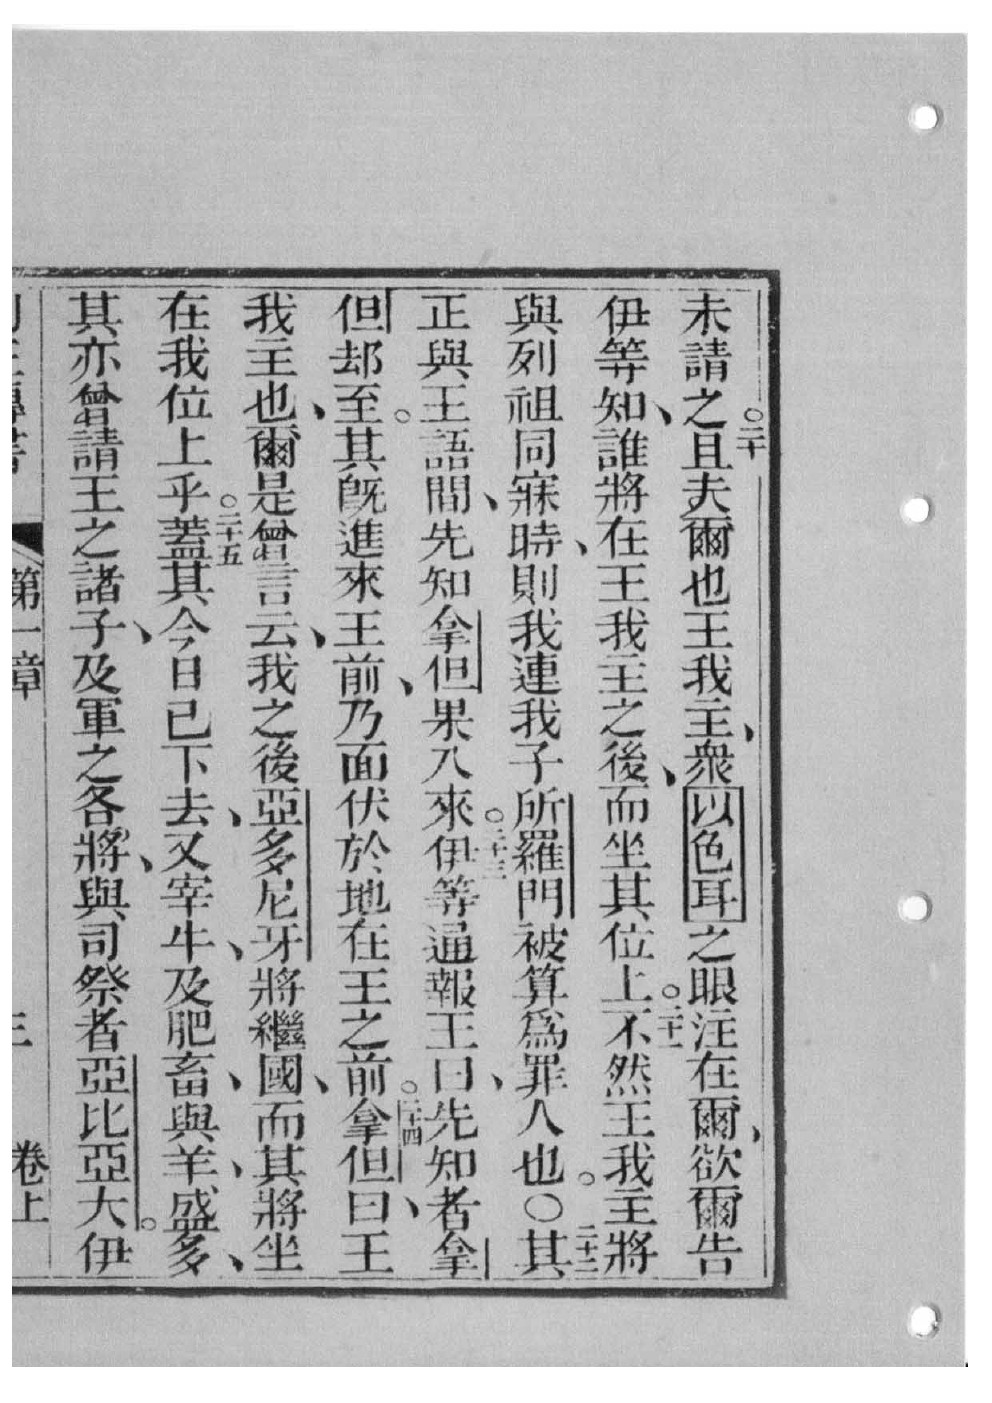 未請之。二十且夫爾也王我主、衆以色耳之眼注在爾、欲爾告
伊等知、誰將在王我主之後、而坐其位上。二十一不然王我主將
與列祖同寐時、則我連我子所羅門被算爲罪人也。〇二十二其
正與王語間、先知拿但果入來。二十三伊等通報王曰、先知者拿
但却至。其既進來王前、乃面伏於地在王之前。二十四拿但曰、王
我主也、爾是曾言云、我之後亞多尼牙將繼國、而其將坐
在我位上乎。二十五蓋其今日已下去、又宰牛、及肥畜、與羊、盛多、
其亦曾請王之諸子、及軍之各將、與司祭者亞比亞大。伊
第一章 三 卷上